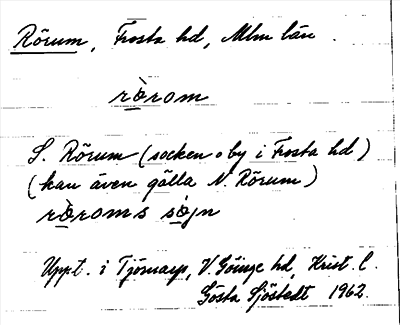 Rörum, Frosta hd, Mlm län.
rø̀rom
S. Rörum (socken o by i Frosta hd)
(kan även gälla N. Rörum)
rø̀roms sø̀jn
Uppt. i Tjörnarp, V. Göinge hd, Krist. l.
Gösta Sjöstedt 1962.